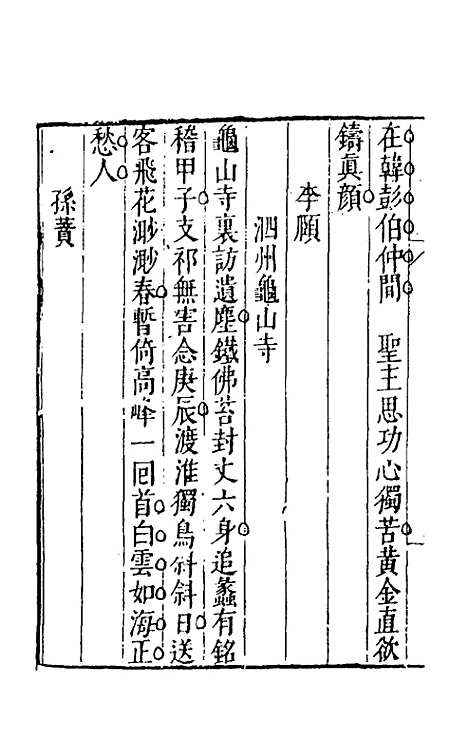 在韓彭伯仲間　聖主思功心獨苦黄金直欲
鑄真顔
李願
泗州龜山寺
龜山寺裏訪遺塵鐵佛苔封丈六身追蠡有銘
稽甲子支祁無害念庚辰渡淮獨鳥斜斜日送
客飛花渺渺春暫倚高峰一回首白雲如海正
愁人
孫蕡